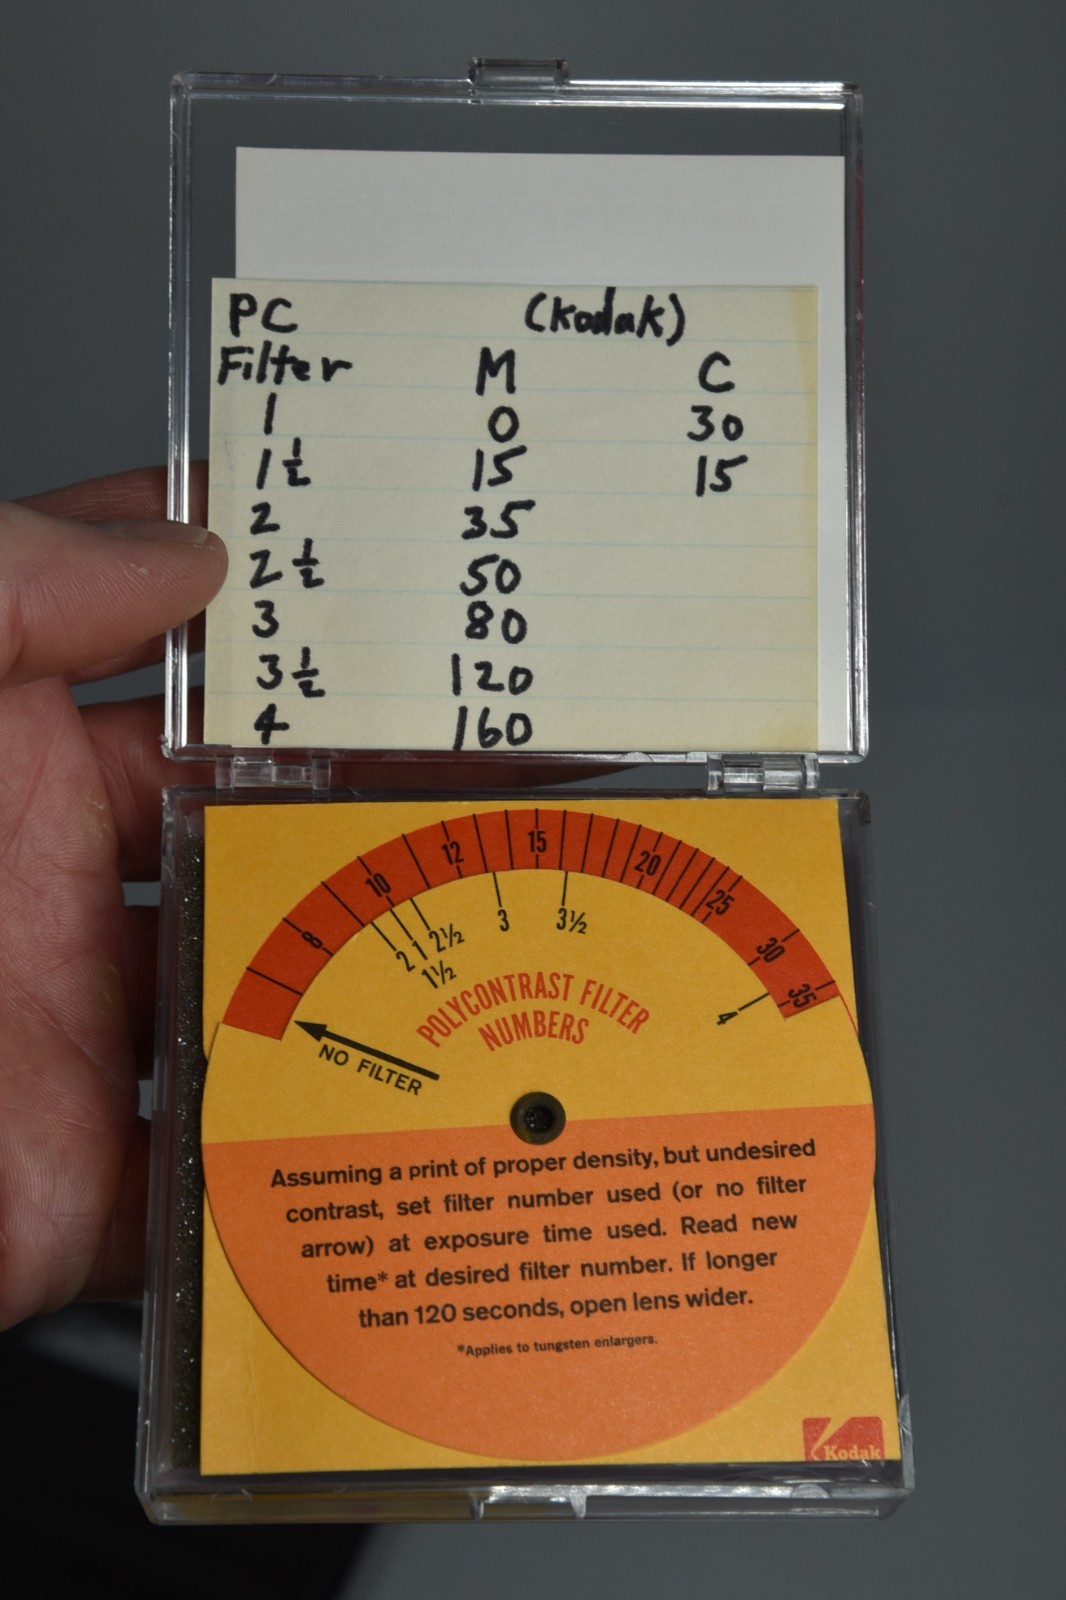 PC (Kodak)
Filter M C
1 0 30
1 1/2 15 15
2 35
2 1/2 50
3 80
3 1/2 120
4 160
8 10 12 15 20 25 30 35
2 1 1½ 2½ 3 3½ 4
POLYCONTRAST FILTER
NUMBERS
NO FILTER
Assuming a print of proper density, but undesired
contrast, set filter number used (or no filter
arrow) at exposure time used. Read new
time* at desired filter number. If longer
than 120 seconds, open lens wider.
*Applies to tungsten enlargers.
Kodak